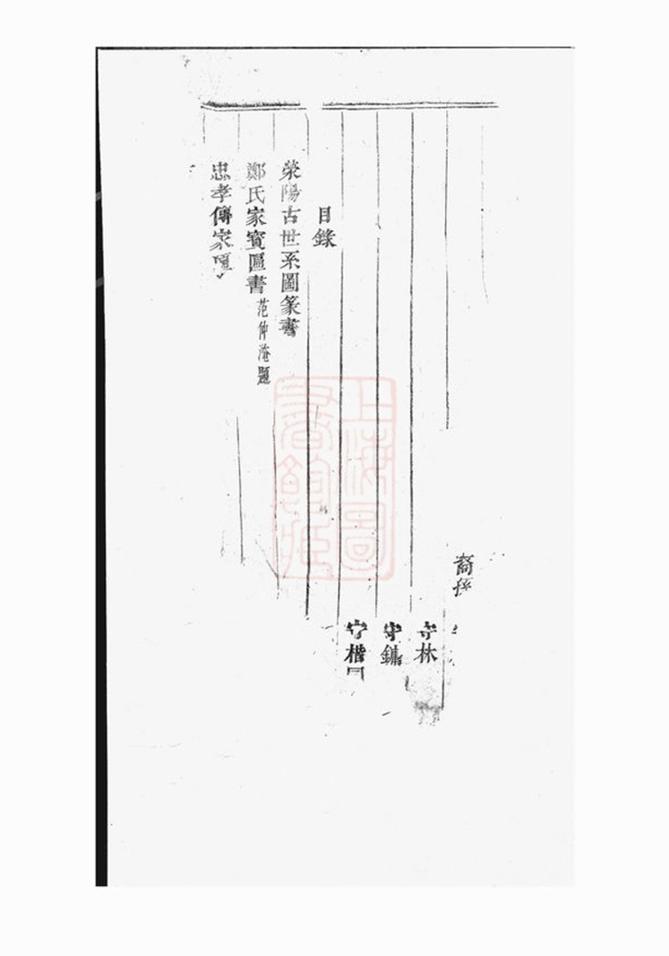 裔孫
守林
守鏞
守楷
目錄
滎陽古世系圖篆書
鄭氏家寶匾書 范仲淹題
忠孝傳家匾
上海圖書館藏